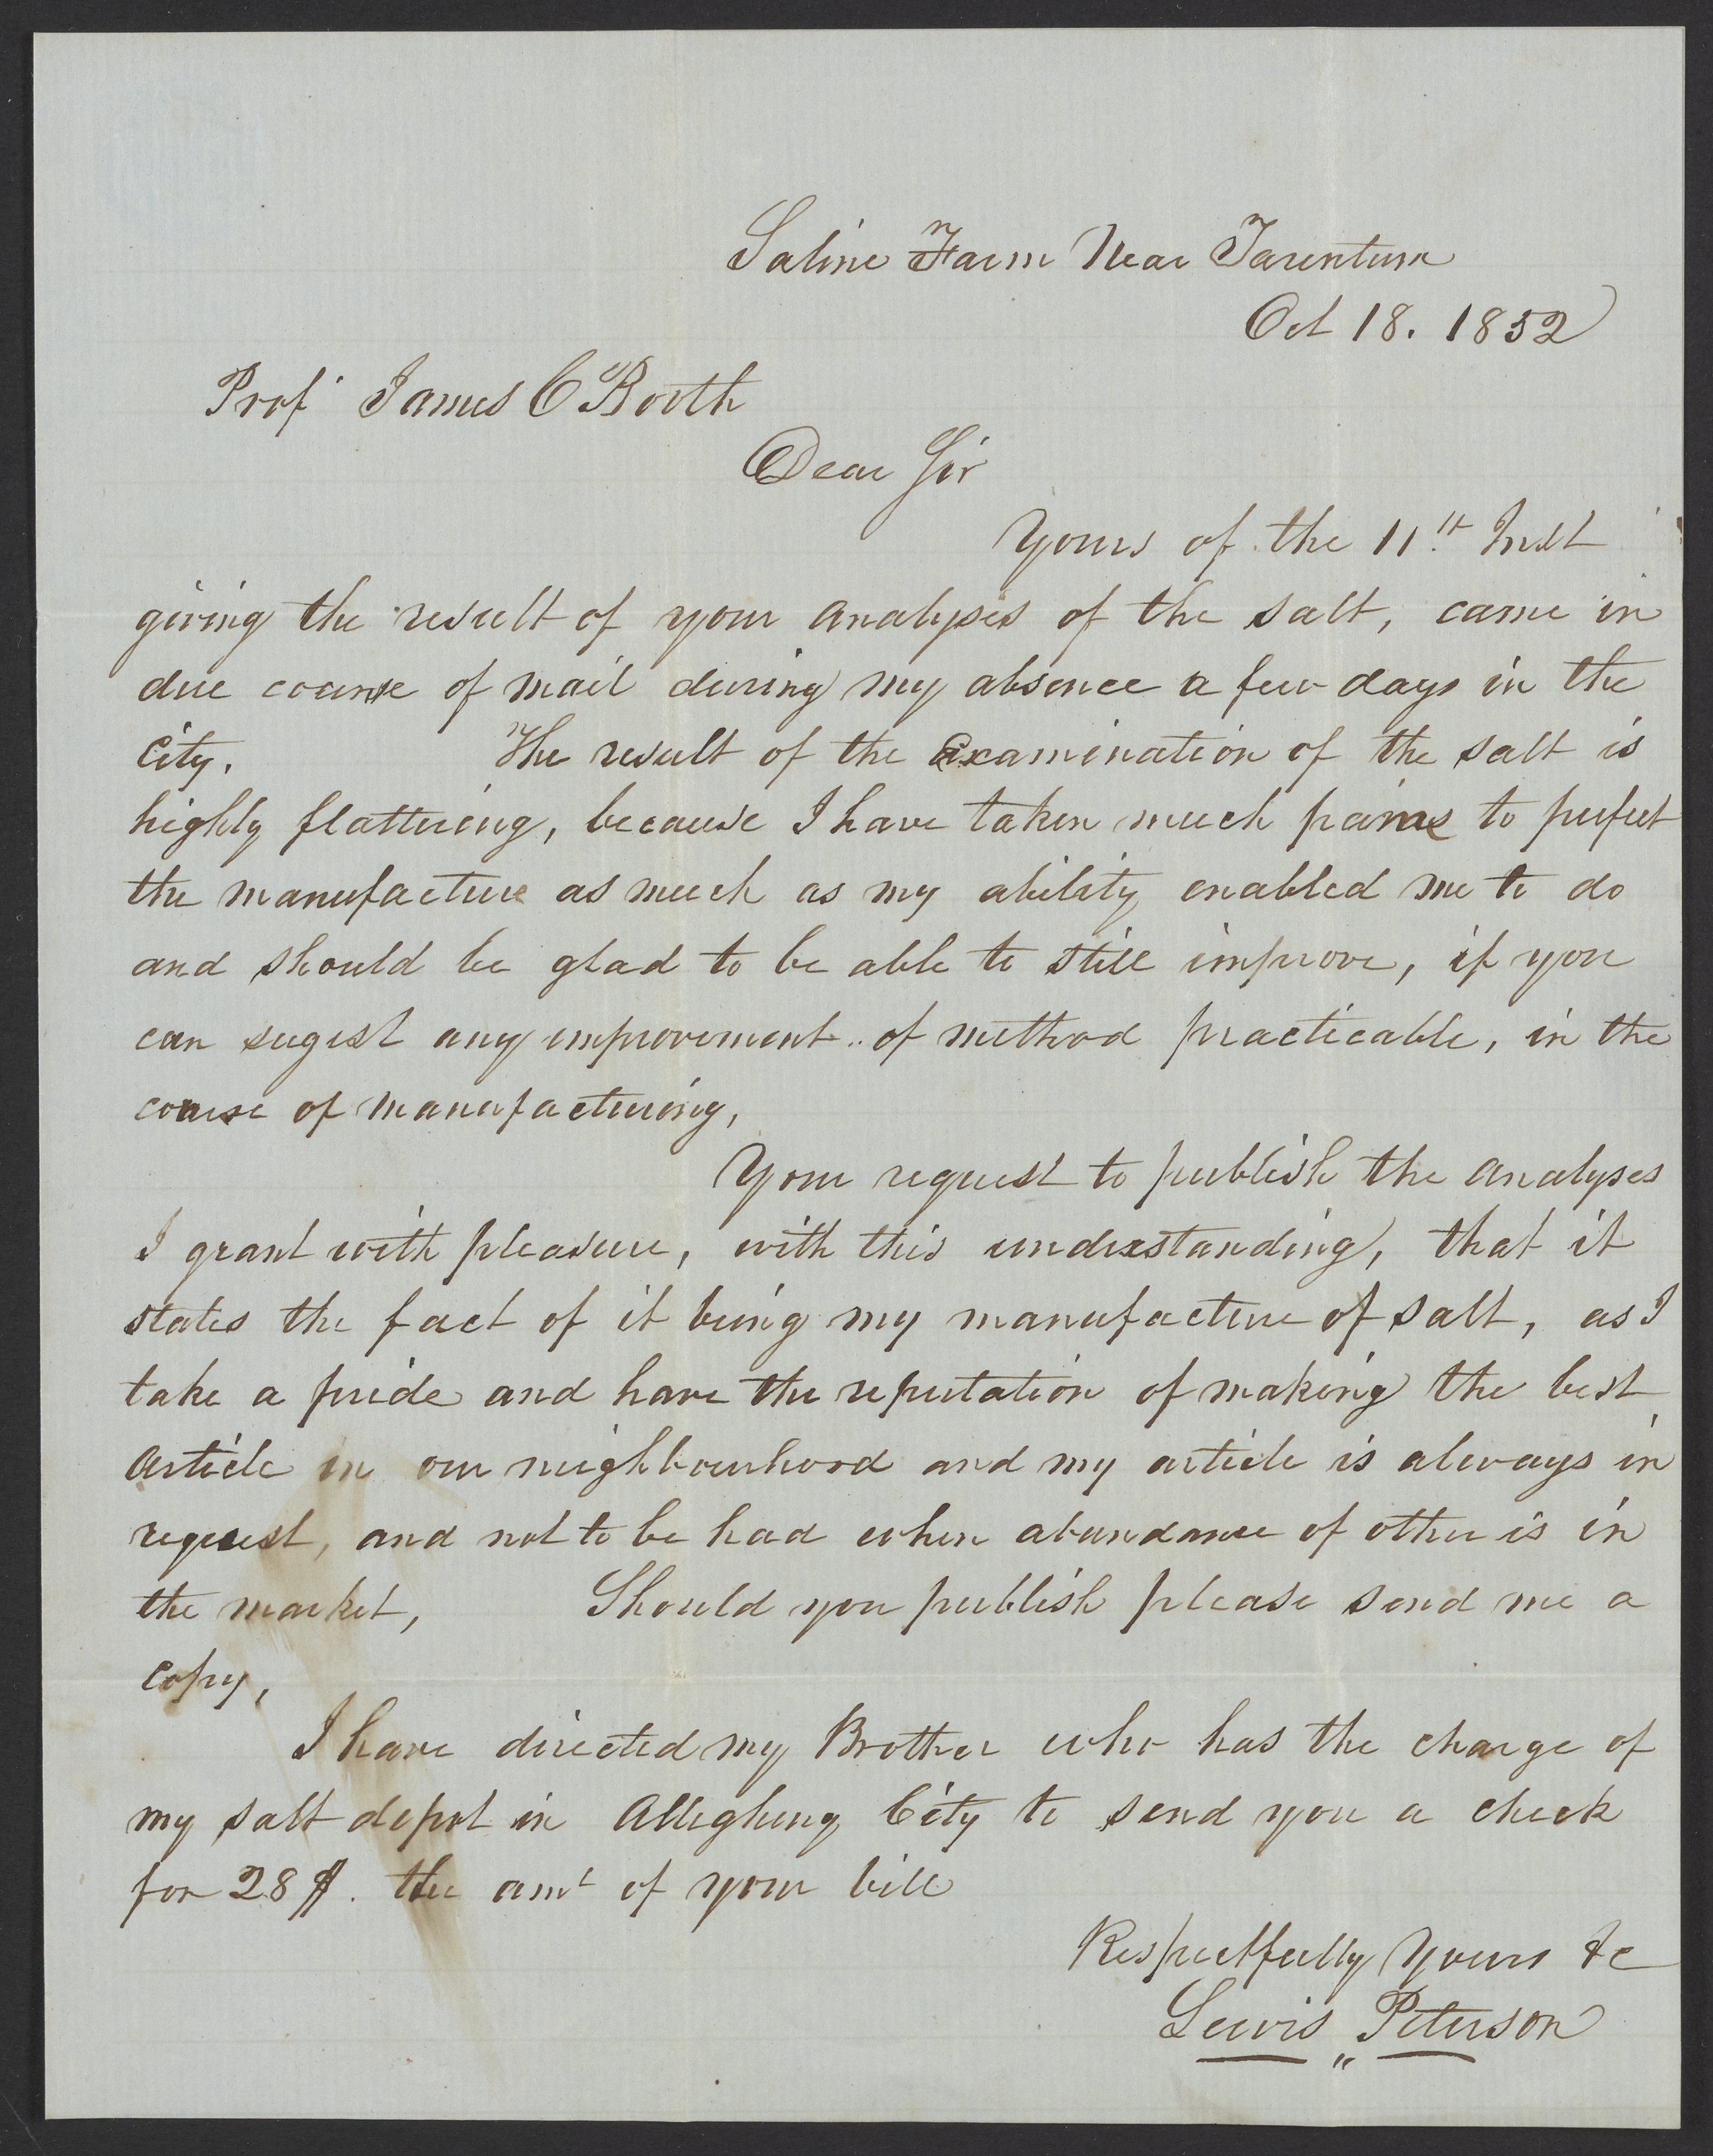 Saline Farm Near Tarentum
Oct 18. 1852
Prof James C Booth
Dear Sir
Yours of the 11th Inst
giving the result of your analysis of the salt, came in
due course of mail during my absence a few days in the
City. The result of the examination of the salt is
highly flattering, because I have taken much pains to perfect
the manufacture as much as my ability enabled me to do
and should be glad to be able to still improve, if you
can sugest any improvement of method practicable, in the
course of manufacturing,
Your request to publish the analyses
I grant with pleasure, with this understanding, that it
states the fact of it being my manufacture of salt, as I
take a pride and have the reputation of making the best
article in our neighbourhood and my article is always in
request, and not to be had when abundance of other is in
the market, Should you publish please send me a
copy,
I have directed my Brother who has the charge of
my salt depot in Allegheny City to send you a check
for 28 $. the amt of your bill
Respectfully Yours &c
Lewis Peterson